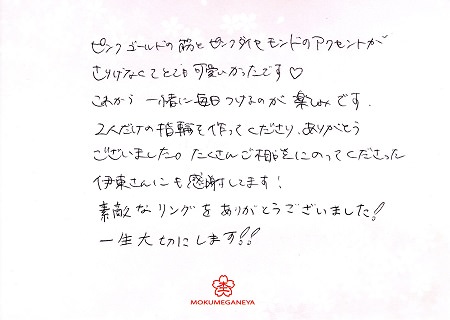 ピンクゴールドの筋とピンクダイヤモンドのアクセントが
さりげなくてとても可愛いかったです♡
これから一緒に毎日つけるのが楽しみです。
2人だけの指輪を作ってくださり、ありがとう
ございました。たくさんご相談にのってくださった
伊東さんにも感謝してます!
素敵なリングをありがとうございました!
一生大切にします!!
MOKUMEGANEYA